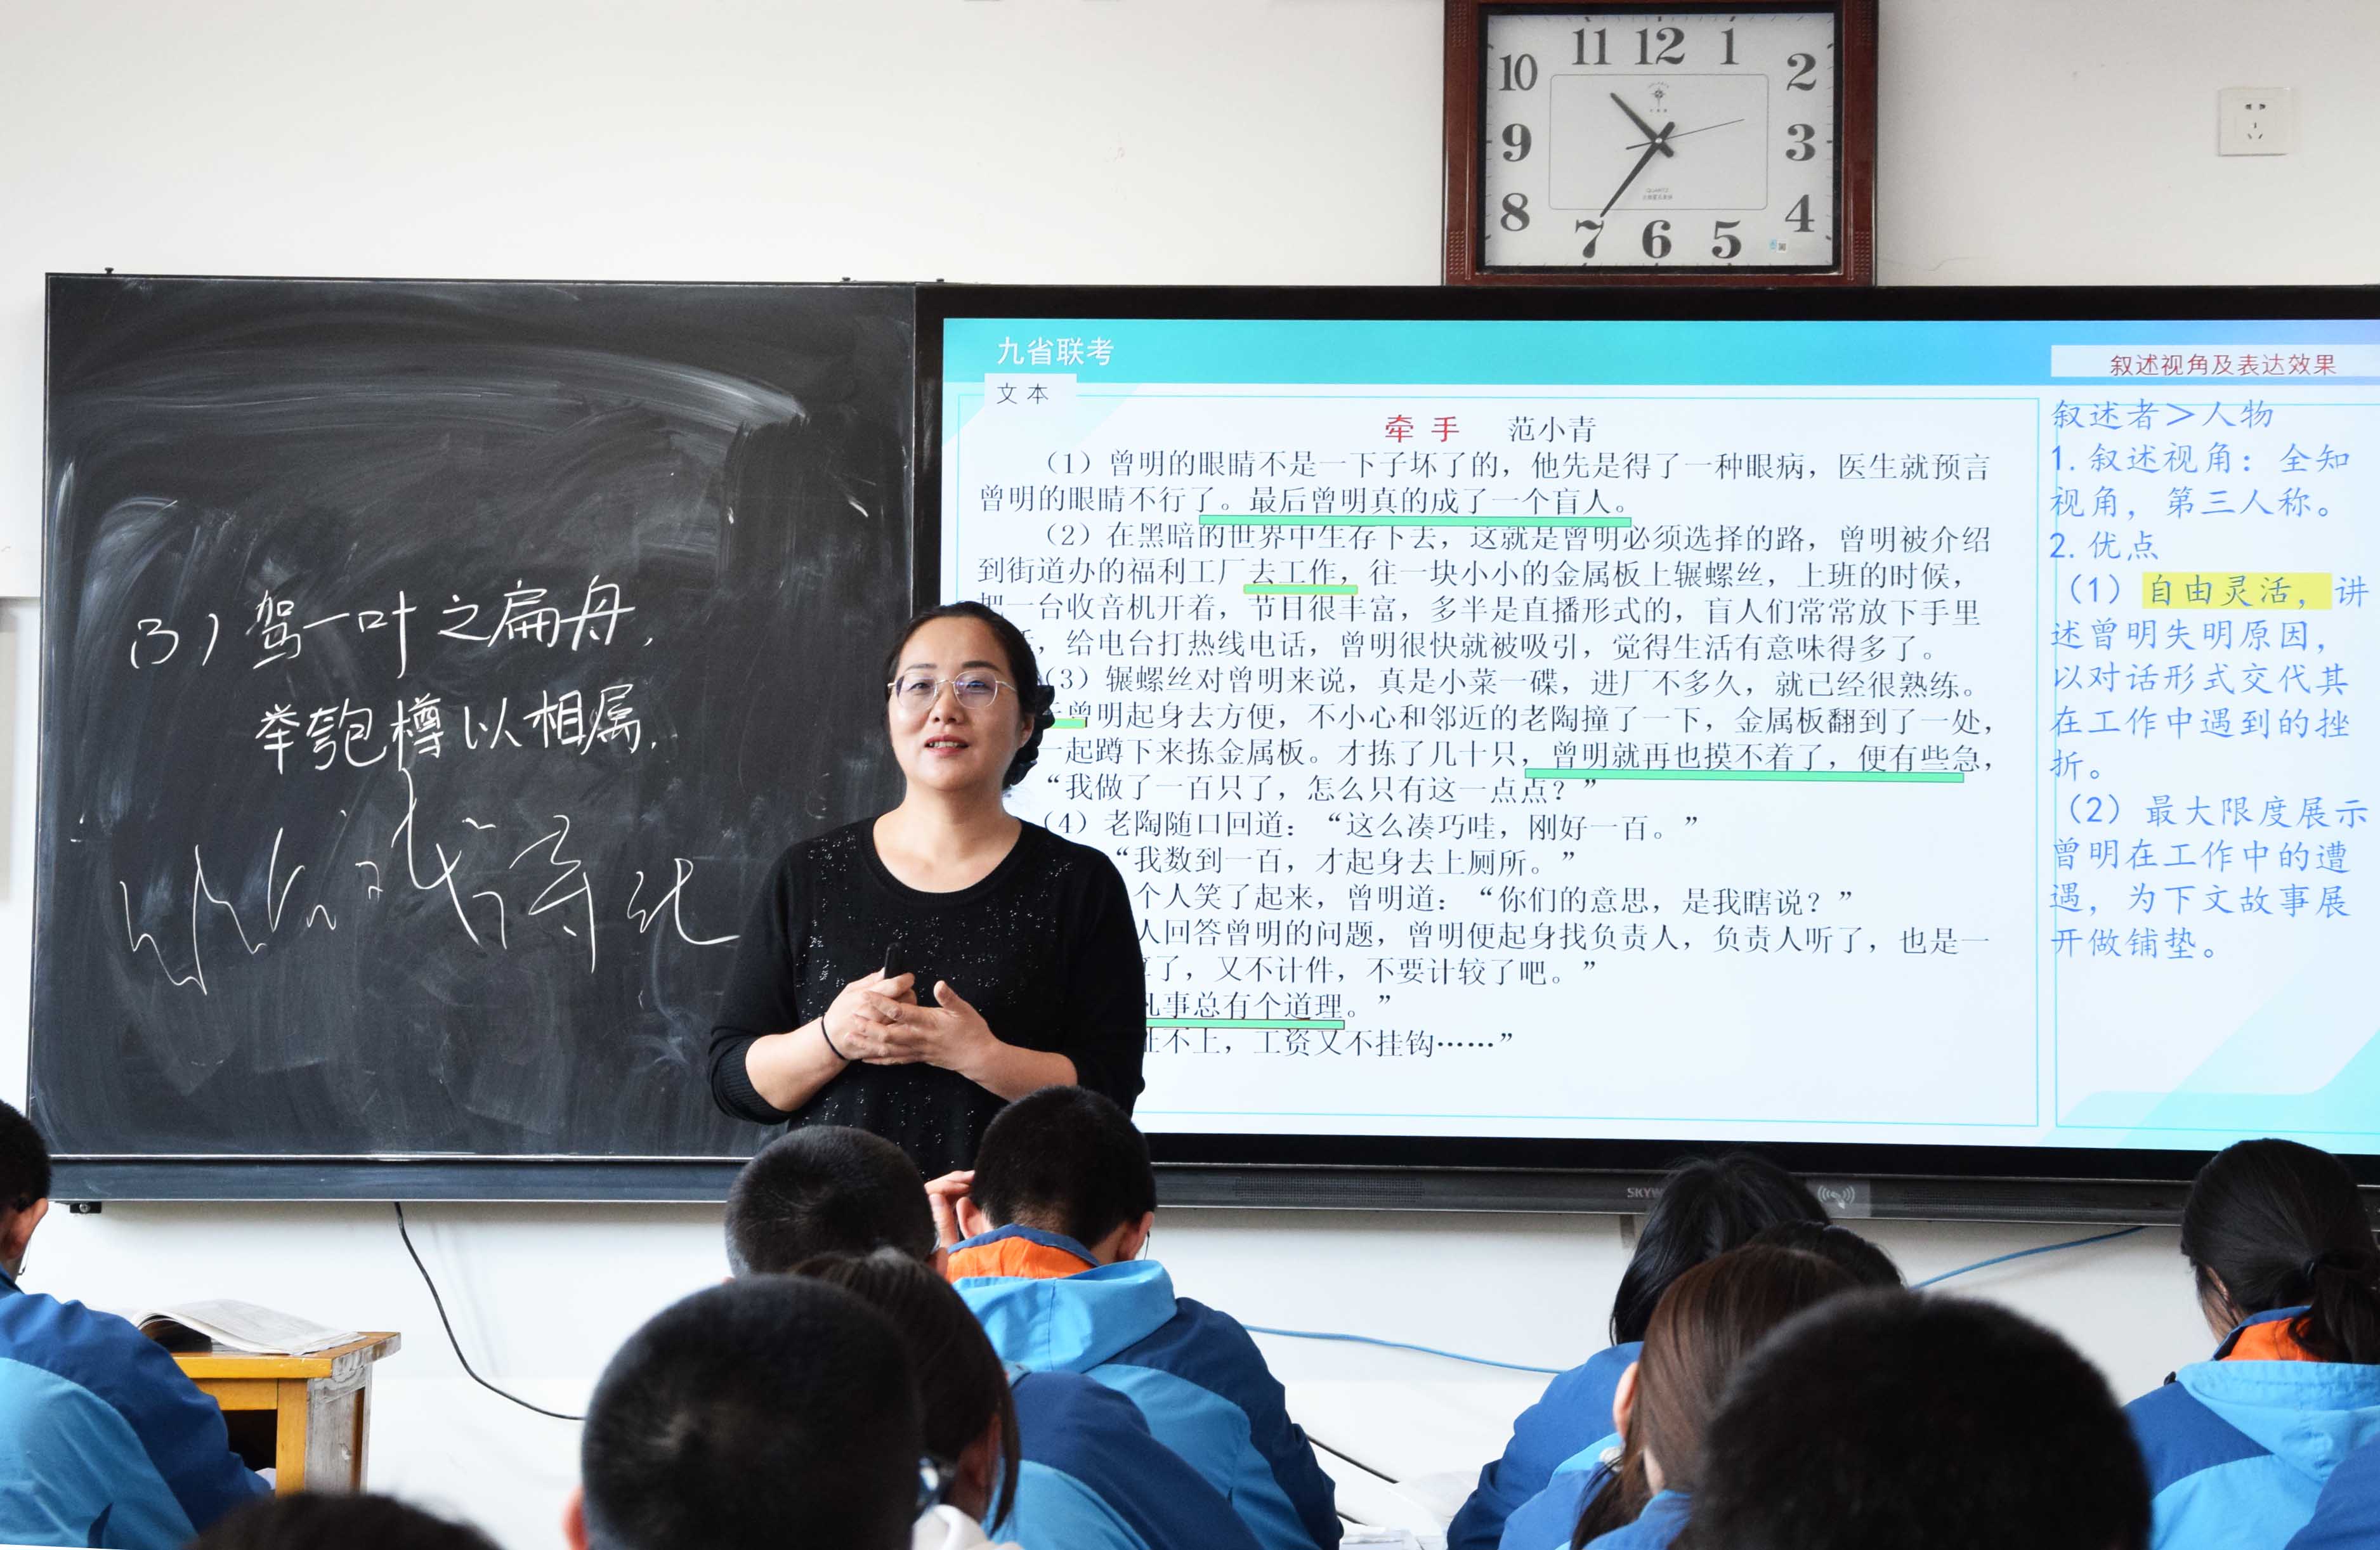 11 12 1
10 2
9 3
8 4
7 6 5
QUARTZ
(3)驾一叶之扁舟,
举匏樽以相属.
九省联考
叙述视角及表达效果
文本
牵手 范小青
(1)曾明的眼睛不是一下子坏了的,他先是得了一种眼病,医生就预言
曾明的眼睛不行了。最后曾明真的成了一个盲人。
(2)在黑暗的世界中生存下去,这就是曾明必须选择的路,曾明被介绍
到街道办的福利工厂去工作,往一块小小的金属板上辗螺丝,上班的时候,
把一台收音机开着,节目很丰富,多半是直播形式的,盲人们常常放下手里
,给电台打热线电话,曾明很快就被吸引,觉得生活有意味得多了。
(3)辗螺丝对曾明来说,真是小菜一碟,进厂不多久,就已经很熟练。
曾明起身去方便,不小心和邻近的老陶撞了一下,金属板翻到了一处,
一起蹲下来拣金属板。才拣了几十只,曾明就再也摸不着了,便有些急,
“我做了一百只了,怎么只有这一点点?”
(4)老陶随口回道:“这么凑巧哇,刚好一百。”
“我数到一百,才起身去上厕所。”
个人笑了起来,曾明道:“你们的意思,是我瞎说?”
人回答曾明的问题,曾明便起身找负责人,负责人听了,也是一
了,又不计件,不要计较了吧。”
凡事总有个道理。”
不上,工资又不挂钩……”
叙述者>人物
1.叙述视角:全知
视角,第三人称。
2.优点
(1)自由灵活,讲
述曾明失明原因,
以对话形式交代其
在工作中遇到的挫
折。
(2)最大限度展示
曾明在工作中的遭
遇,为下文故事展
开做铺垫。